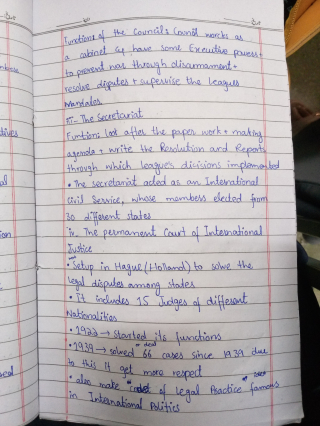 Functions of the Council:- Council works as
a cabinet & have some Executive powers +
to prevent war through disarmament +
resolve disputes + supervise the Leagues
Mandates
iii- The Secretariat
Funtions look after the paper work + making
agenda + write the Resolution and Reports
through which league's dicisions implemented
• The secretariat acted as an International
Civil Service, whose members elected from
30 different states
iv- The permanent Court of International
Justice
• Setup in Hague (Holland) to solve the
legal disputes among states
• It includes 15 Judges of different
Nationalities
• 1922 → started its functions
• 1939 → solved 66 cases since 1939 due
to this it get more respect
• also make of Legal Practice famous
in International Politics